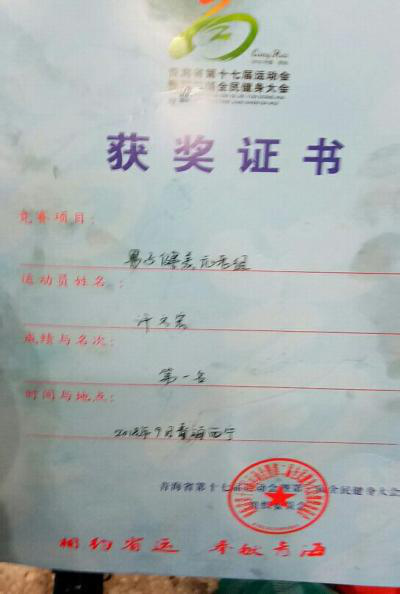 青海省第十七届运动会
全民健身大会
获奖证书
竞赛项目：
男子健美元老组
运动员姓名：
成绩与名次：
第一名
时间与地点：
2018年9月青海西宁
青海省第十七届运动会暨第二届全民健身大会
组织委员会
相约省运 奉献青海